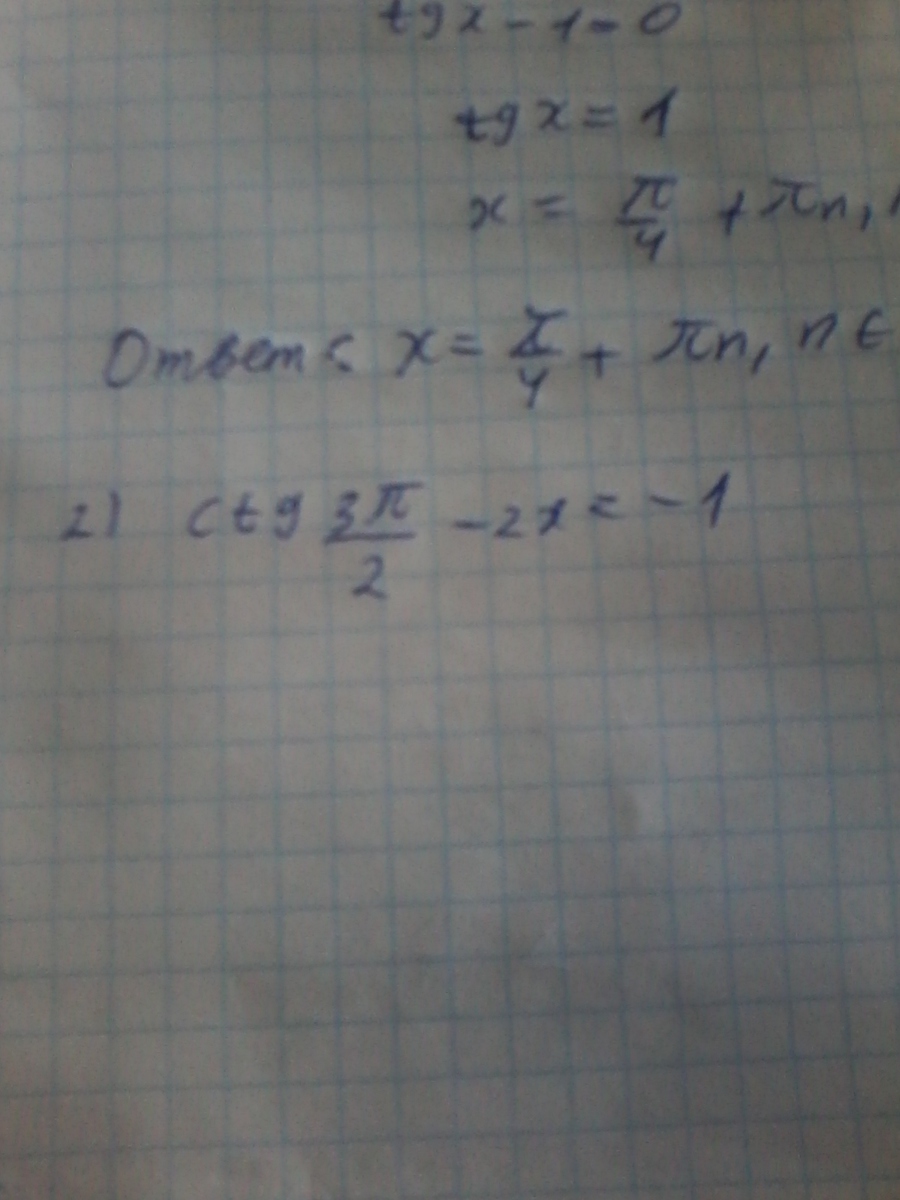 tg x - 1 = 0
tg x = 1
x = π/4 + πn,
Ответ: x = π/4 + πn, n ∈
2) ctg 3π/2 - 2x = -1